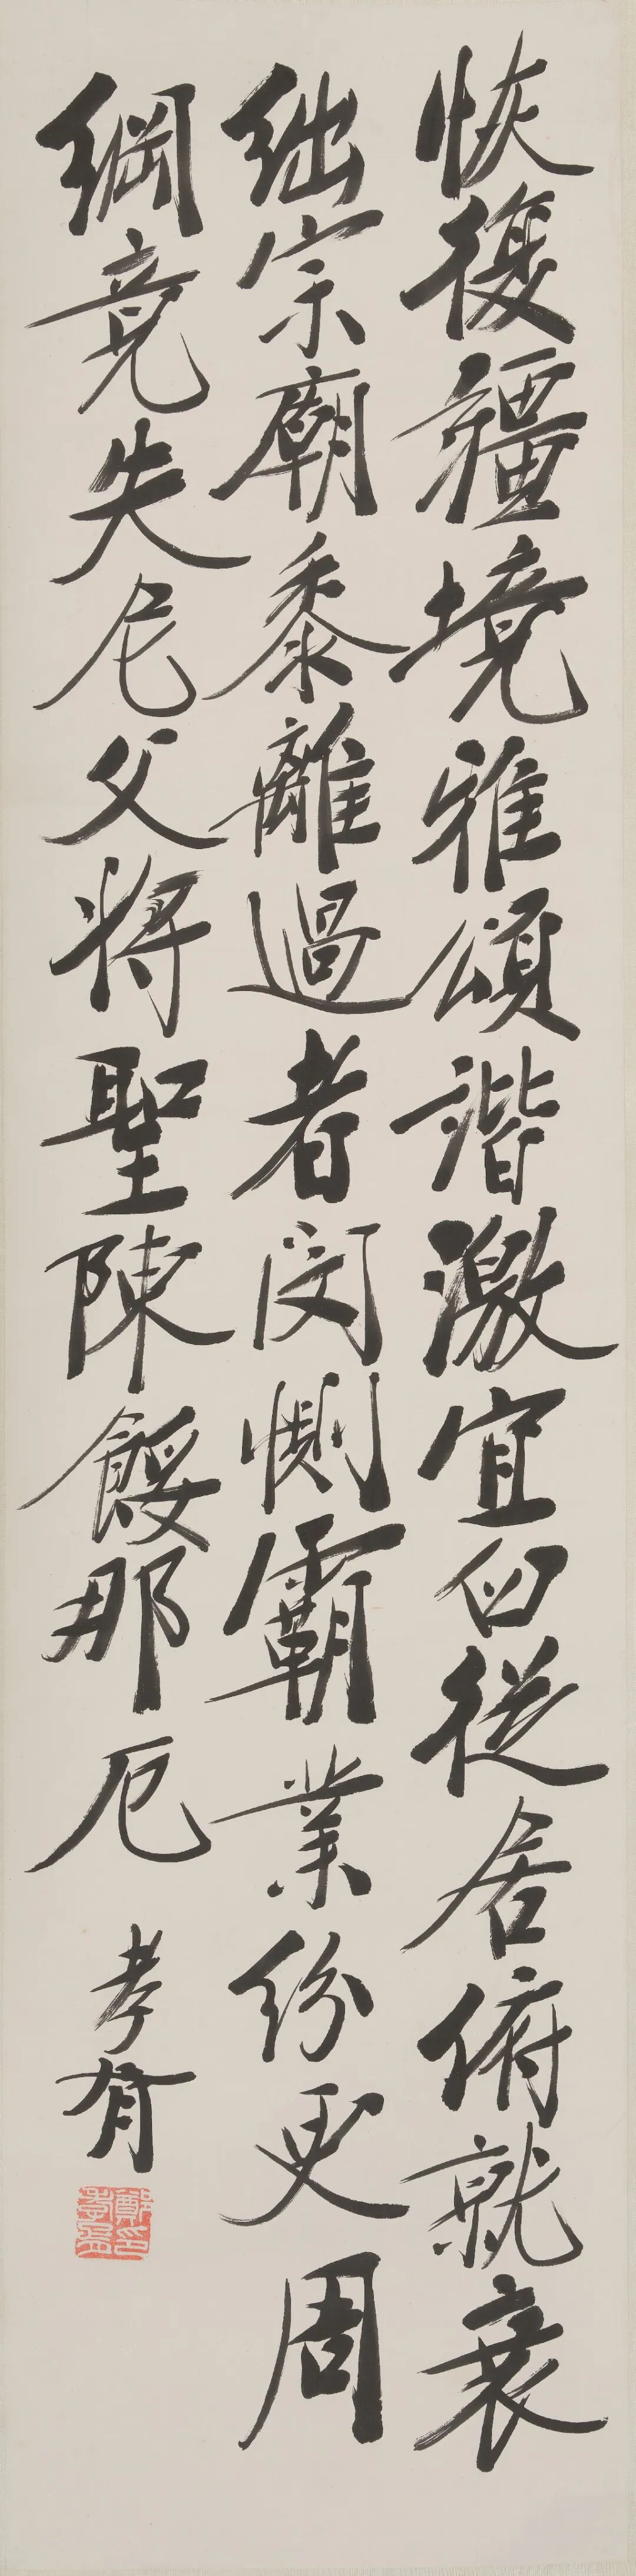 恢復疆境雅頌諧激宜臼從居俯就衰
絀宗廟黍離過者閔惻霸業紛更周
綱竟失尼父將聖陳餒那厄
孝胥
鄭印孝胥